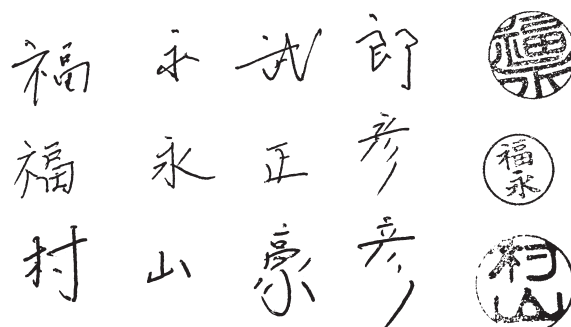 福永武郎 福永
福永正彦 福永
村山豪彦 村山